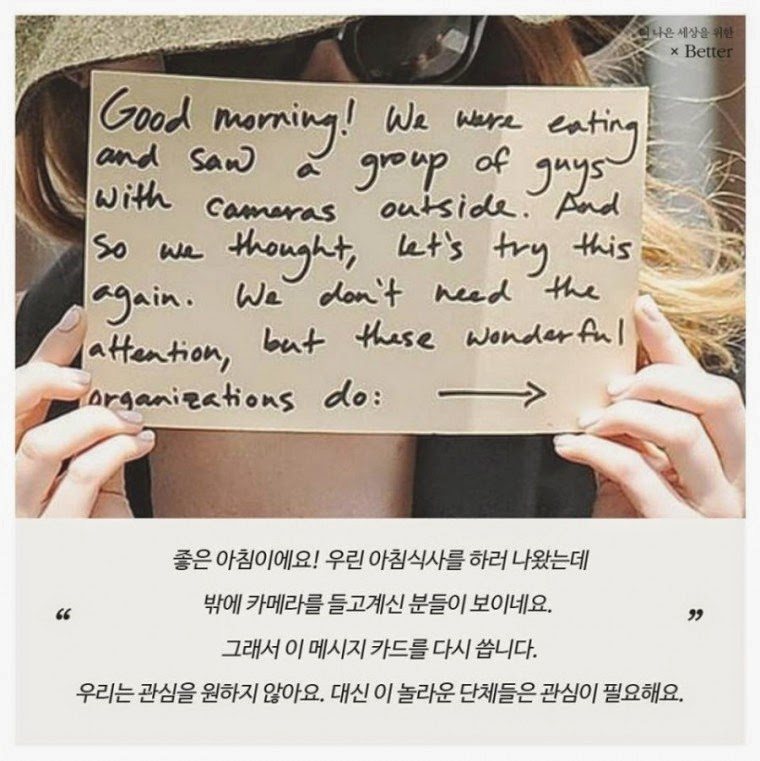 나은 세상을 위한
× Better
Good morning! We were eating
and saw a group of guys
with cameras outside. And
so we thought, let's try this
again. We don't need the
attention, but these wonderful
organizations do: →
좋은 아침이에요! 우린 아침식사를 하러 나왔는데
“ 밖에 카메라를 들고계신 분들이 보이네요. ”
그래서 이 메시지 카드를 다시 씁니다.
우리는 관심을 원하지 않아요. 대신 이 놀라운 단체들은 관심이 필요해요.